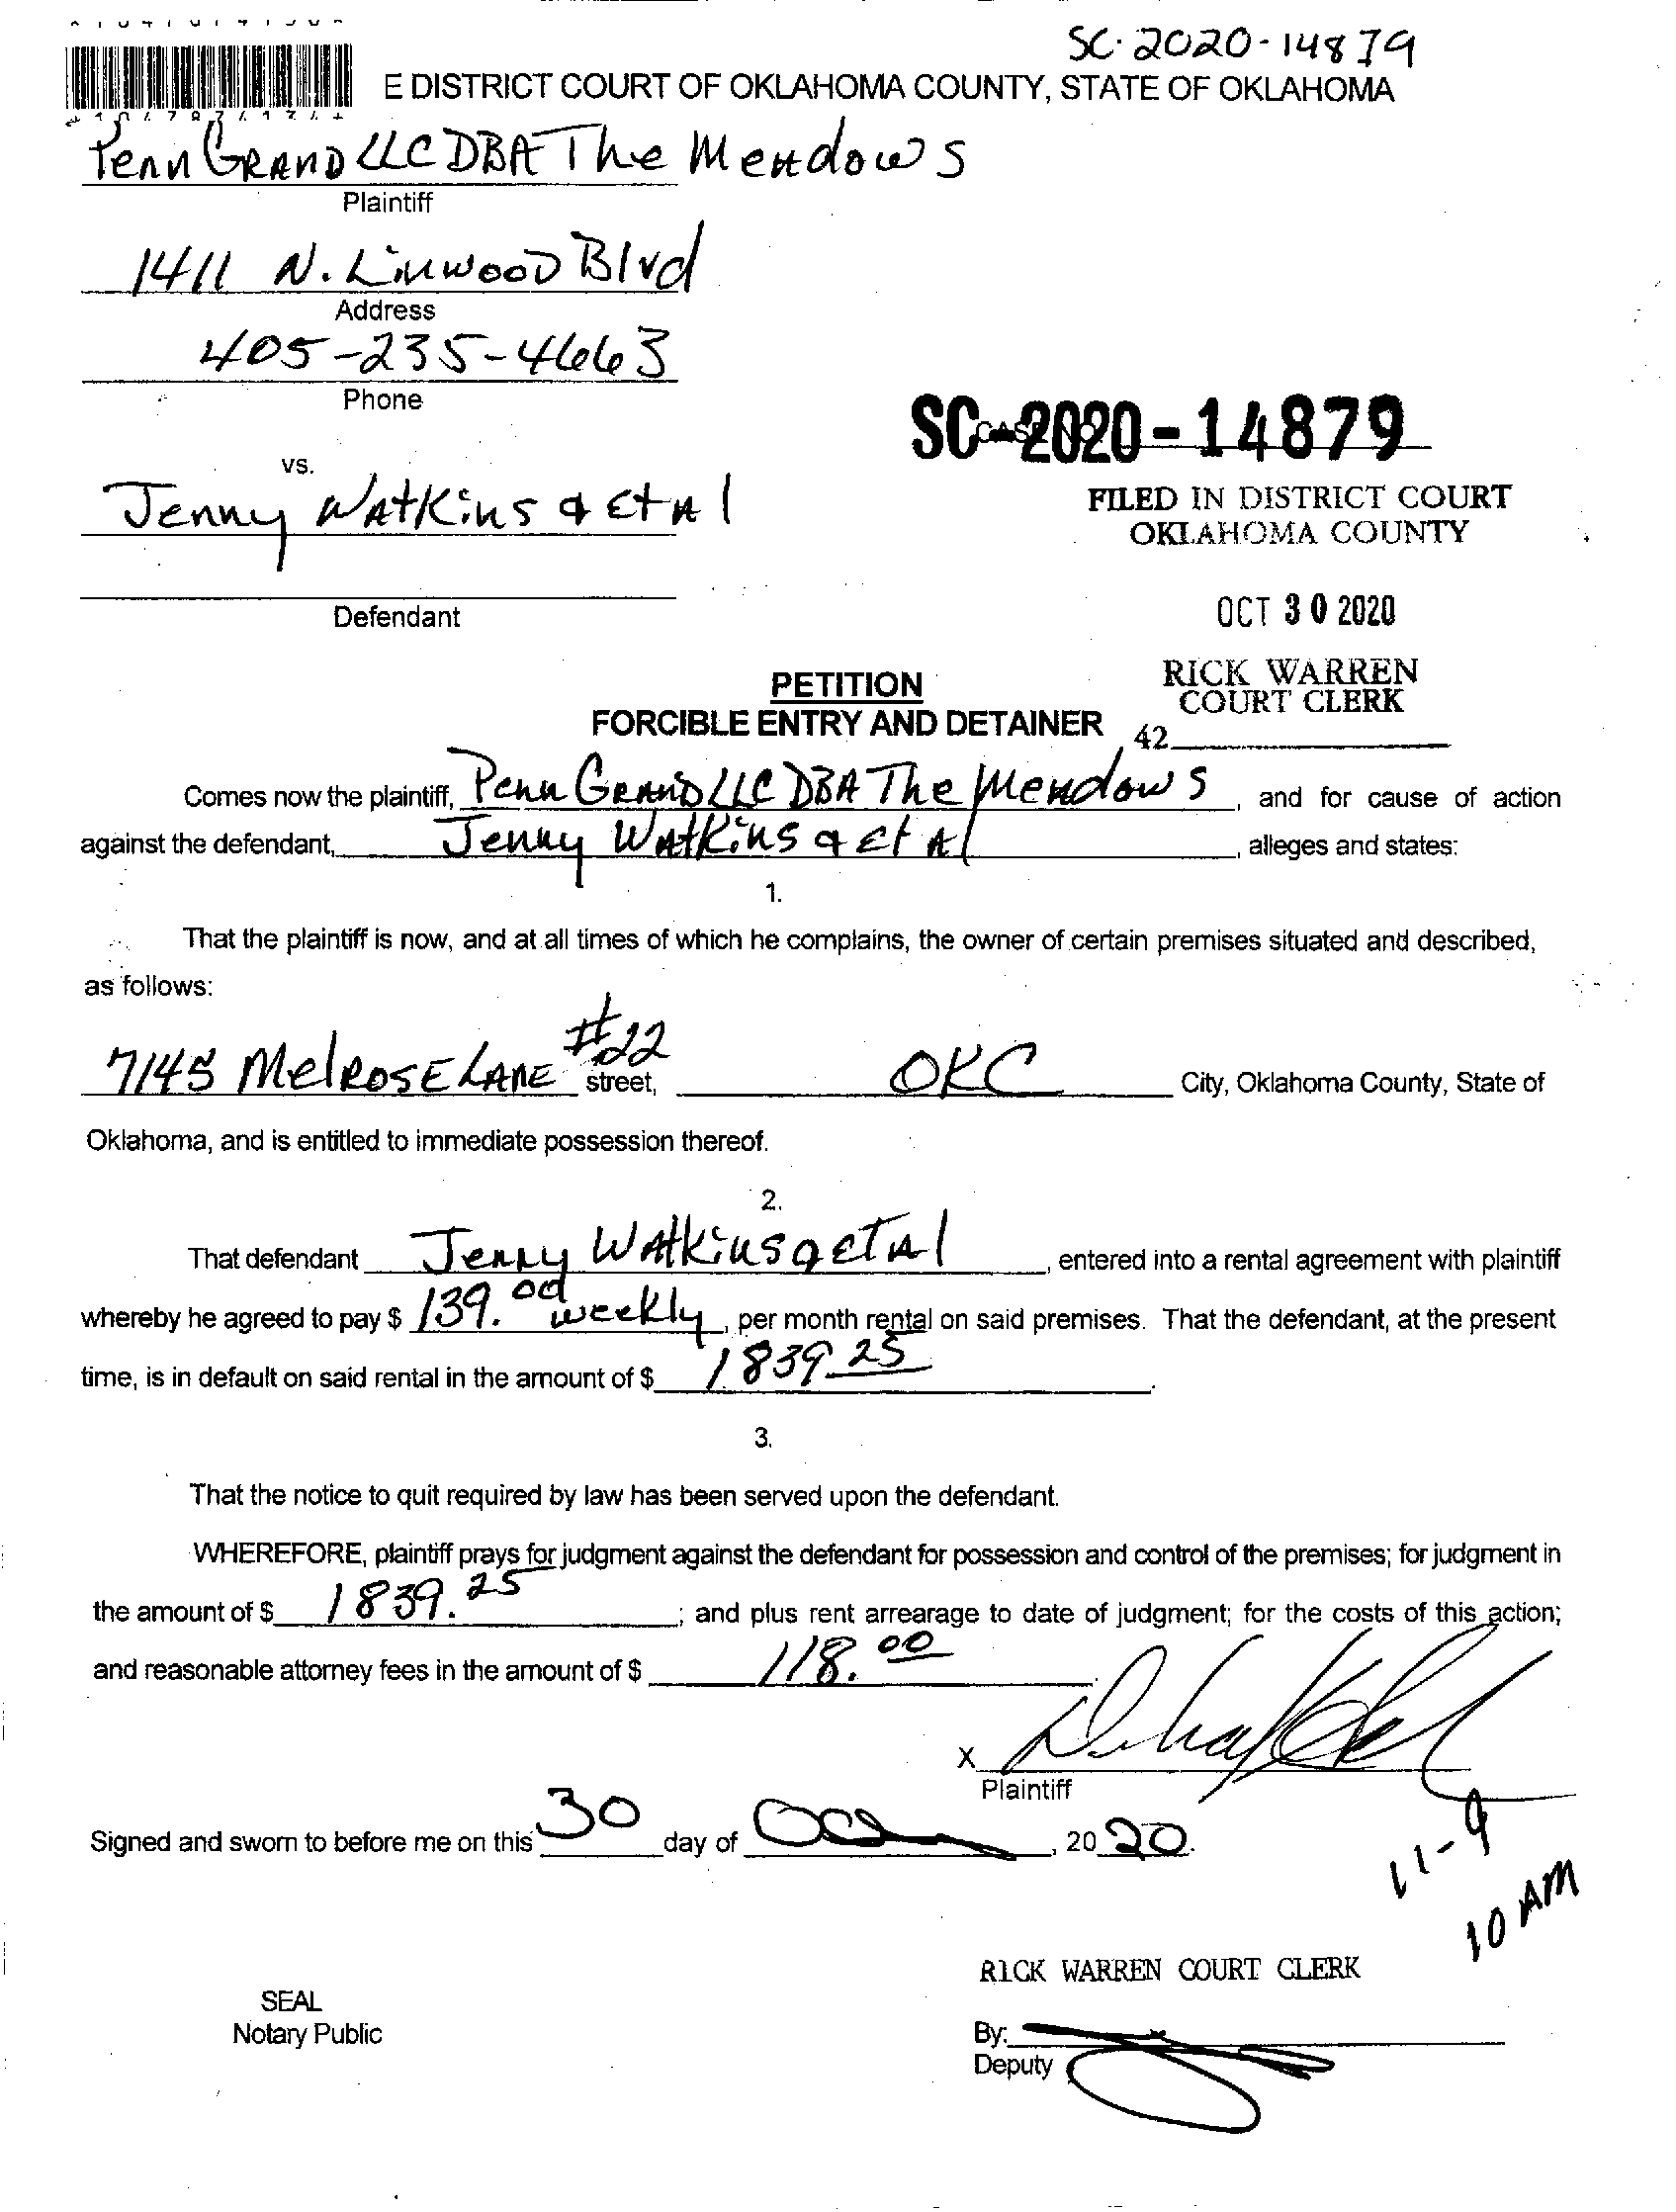 SC-2020-14879
E DISTRICT COURT OF OKLAHOMA COUNTY, STATE OF OKLAHOMA
Penn Grand LLC DBA The Meadows
Plaintiff
1411 N. Linwood Blvd
Address
405-235-4663
Phone
SC-2020-14879
vs.
Jenny Watkins & Et Al
FILED IN DISTRICT COURT
OKLAHOMA COUNTY
Defendant
OCT 30 2020
PETITION
RICK WARREN
COURT CLERK
FORCIBLE ENTRY AND DETAINER
42
Comes now the plaintiff, Penn Grand LLC DBA The Meadows, and for cause of action
against the defendant, Jenny Watkins & Et Al, alleges and states:
1.
That the plaintiff is now, and at all times of which he complains, the owner of certain premises situated and described,
as follows:
7145 Melrose Lane #22 street, OKC City, Oklahoma County, State of
Oklahoma, and is entitled to immediate possession thereof.
2.
That defendant Jenny Watkins & Et Al, entered into a rental agreement with plaintiff
whereby he agreed to pay $ 139.00 weekly, per month rental on said premises. That the defendant, at the present
time, is in default on said rental in the amount of $ 1839.25.
3.
That the notice to quit required by law has been served upon the defendant.
WHEREFORE, plaintiff prays for judgment against the defendant for possession and control of the premises; for judgment in
the amount of $ 1839.25; and plus rent arrearage to date of judgment; for the costs of this action;
and reasonable attorney fees in the amount of $ 118.00.
X
Plaintiff
Signed and sworn to before me on this 30 day of Oct, 2020.
11-9
10 AM
RICK WARREN COURT CLERK
SEAL
Notary Public
By:
Deputy